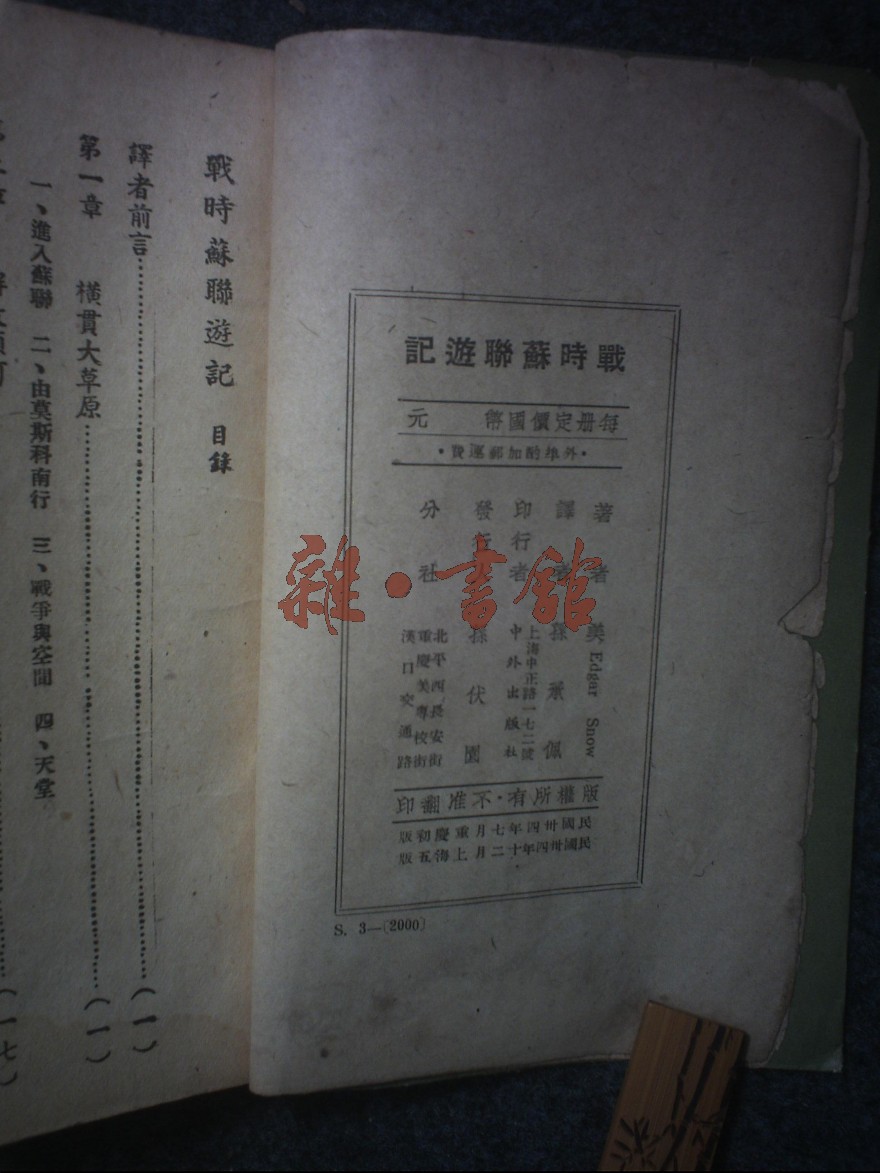 戰時蘇聯遊記
每册定價國幣 元
•外埠酌加郵運費•
著者 美 Edgar Snow
譯者 孫承佩
印行者 中外出版社
上海中正路一七二號
發行 孫伏園
分社 北平西長安街
重慶美專校街
漢口交通路
版權所有•不准翻印
民國卅四年七月重慶初版
民國卅四年十二月上海五版
S. 3—(2000)
雜•書館
戰時蘇聯遊記 目錄
譯者前言 (一)
第一章 橫貫大草原 (一)
一、進入蘇聯 二、由莫斯科南行 三、戰爭與空間 四、天堂
(一七)